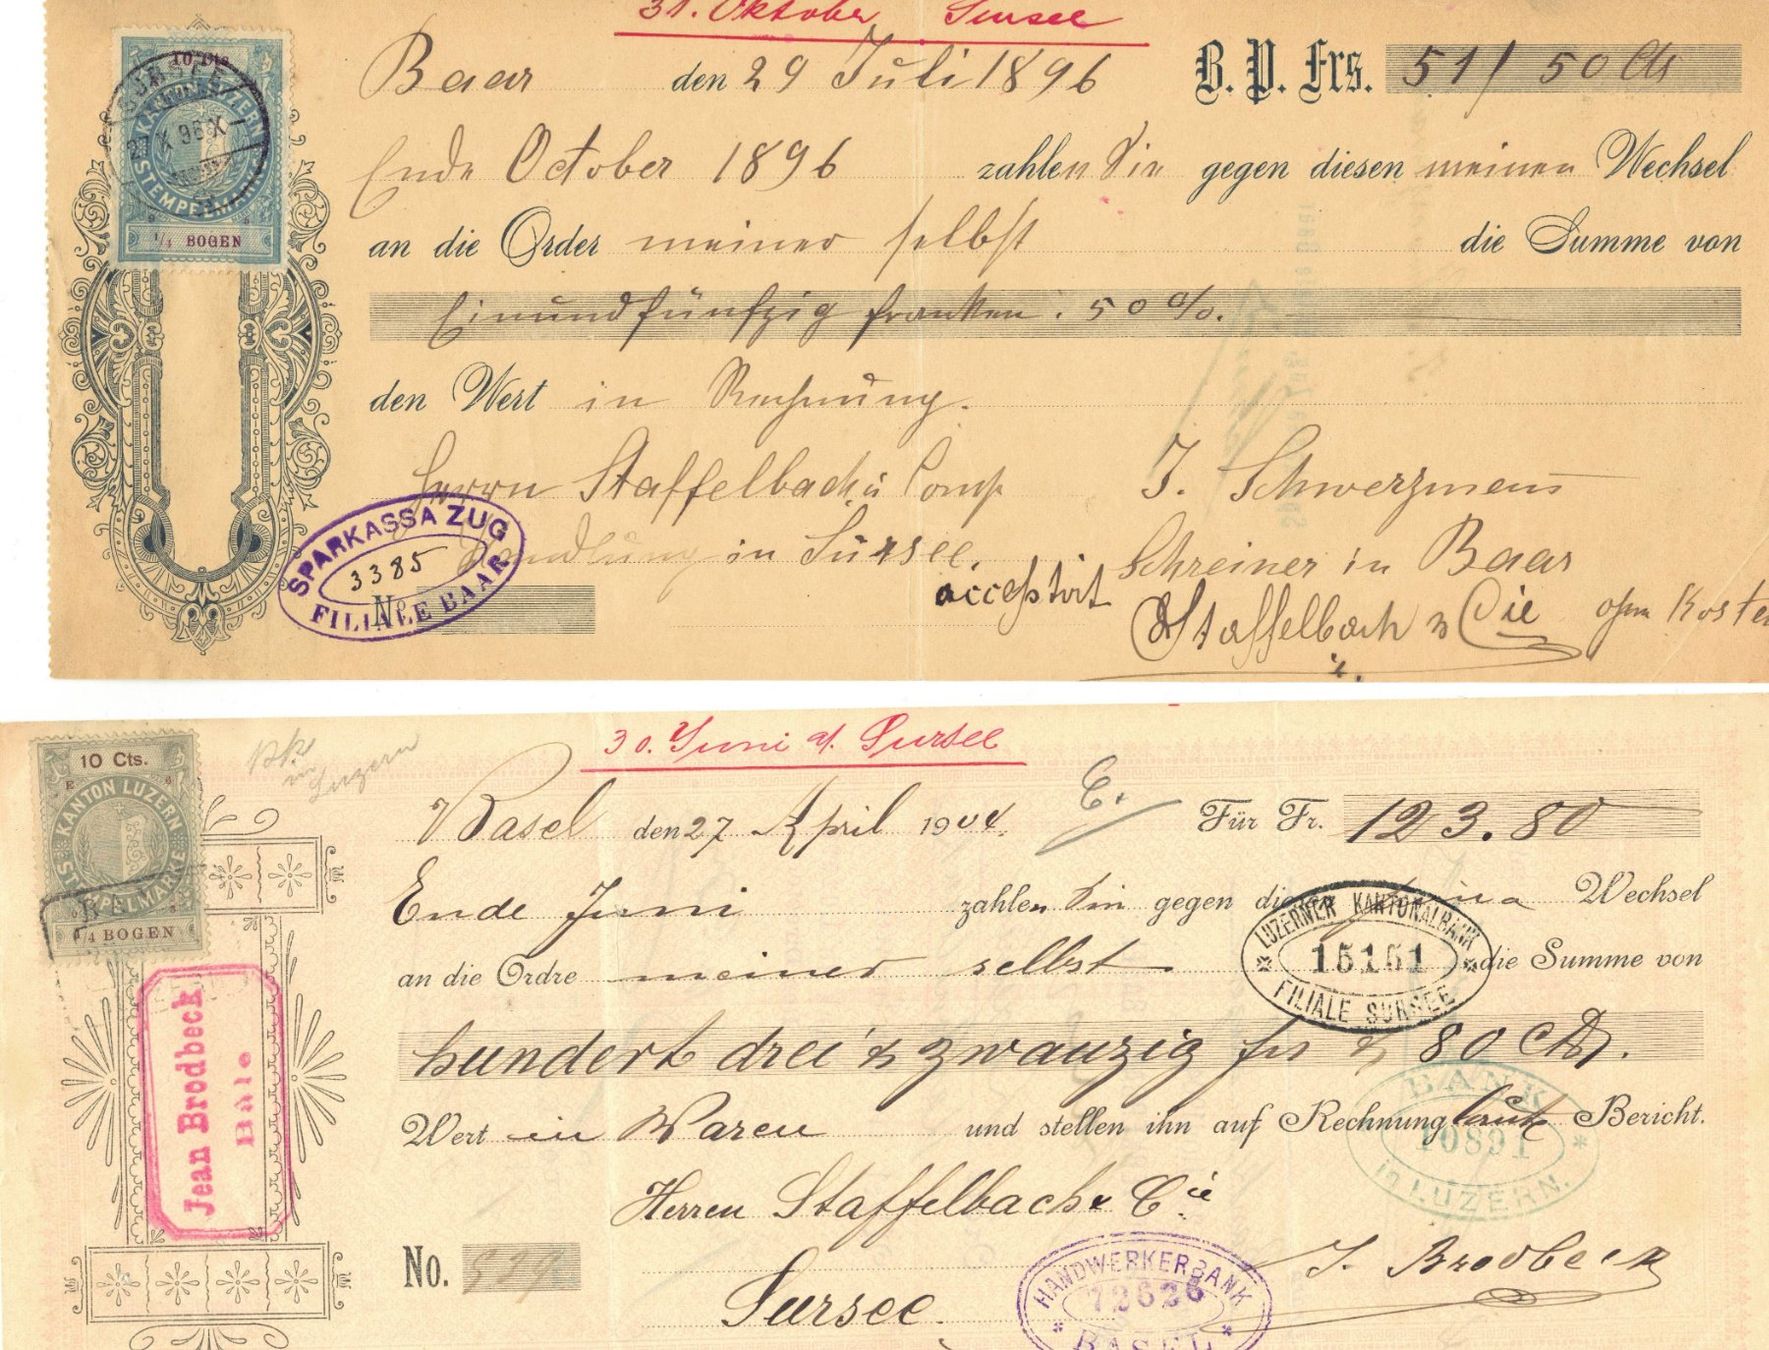 31. Oktober Sursee
10 Cts.
KANTON LUZERN
STEMPELMARKE
1/4 BOGEN
SURSEE
Baar den 29 Juli 1896 B. P. Frs. 51/50 Cts
Ende October 1896 zahlen Sie gegen diesen meinen Wechsel
an die Order meiner selbst die Summe von
Einundfünfzig franken : 50 cts.
den Wert in Rechnung.
Herrn Staffelbach u Comp J. Schwerzmann
Handlung in Sursee. Schreiner in Baar
SPARKASSA ZUG
3385
FILIALE BAAR
No
acceptirt Staffelbach & Cie ohne Kosten
30. Juni a/ Sursee
10 Cts.
KANTON LUZERN
STEMPELMARKE
1/4 BOGEN
in Luzern
Basel den 27 April 1904. Für Fr. 123.80
Ende Juni zahlen Sie gegen Wechsel
an die Ordre meiner selbst die Summe von
LUZERNER KANTONALBANK
15151
FILIALE SURSEE
hundert drei & zwanzig frs & 80 Cts.
Wert in Waren und stellen ihn auf Rechnung laut Bericht.
BANK
10891
in LUZERN.
Jean Brodbeck
Bâle
Herren Staffelbach & Cie
No.
J. Brodbeck
Sursee.
HANDWERKERBANK
72626
BASEL